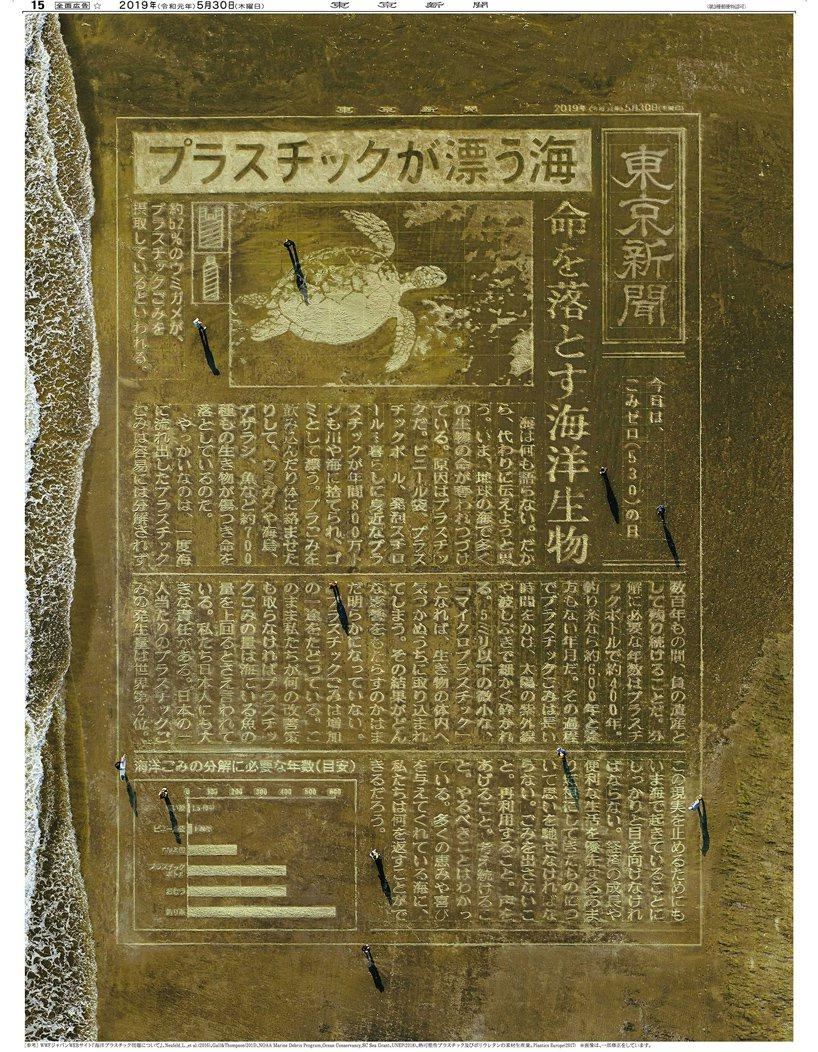 15 全面広告 ☆ 2019年(令和元年)5月30日(木曜日) 東京新聞 (第3種郵便物認可)
東京新聞 2019年(令和元年)5月30日(木曜日)
東京新聞
プラスチックが漂う海
命を落とす海洋生物
今日は、
ごみゼロ(530)の日
約52%のウミガメが、
プラスチックごみを
摂取しているといわれる。
海は何も語らない。だか
ら、代わりに伝えようと思
う。いま、地球の海で多く
の生物の命が奪われつづけ
ている。原因はプラスチッ
クだ。ビニール袋、プラス
チックボトル、発泡スチロ
ール…暮らしに身近なプラ
スチックが年間800万ト
ンも川や海に捨てられ、ゴ
ミとして漂う。プラごみを
飲み込んだり体に絡ませた
りして、ウミガメや海鳥、
アザラシ、魚など約700
種もの生き物が傷つき命を
落としているのだ。
やっかいなのは、一度海
に流れ出したプラスチック
ごみは容易には分解されず
数百年もの間、負の遺産と
して残り続けることだ。分
解に必要な年数はプラスチ
ックボトルで約400年。
釣り糸なら約600年と途
方もない年月だ。その過程
でプラスチックごみは長い
時間をかけ、太陽の紫外線
や波しぶきで細かく砕かれ
る。5ミリ以下の微小な、
「マイクロプラスチック」
となれば、生き物の体内へ
気づかぬうちに取り込まれ
てしまう。その結果がどん
な影響をもたらすのかはま
だ明らかになっていない。
プラスチックごみは増加
の一途をたどっている。こ
のまま私たちが何の改善策
も取らなければ、プラスチッ
クごみの量は海にいる魚の
量を上回るとさえ言われて
いる。私たち日本人にも大
きな責任がある。日本の一
人当たりのプラスチックご
みの発生量は世界第2位。
この現実を止めるためにも
いま海で起きていることに
しっかりと目を向けなけれ
ばならない。経済の成長や
便利な生活を優先するあま
り
にしてきたものにつ
いて思いを馳せなければな
らない。ごみを出さないこ
と。再利用すること。声を
あげること。考え続けるこ
と。やるべきことはわかっ
ている。多くの恵みや喜び
を与えてくれている海に、
私たちは何を返すことがで
きるだろう。
海洋ごみの分解に必要な年数(目安)
0 100 200 300 400 500 600
ビニール袋
プラスチック
ボトル
おむつ
釣り糸
[参考] WWFジャパンWEBサイト「海洋プラスチック問題について」、Neufeld,L.,et al.(2016),Gall&Thompson(2015),NOAA Marine Debris Program,Ocean Conservancy,SC Sea Grant,UNEP(2018),熱可塑性プラスチック及びポリウレタンの素材生産量。Plastics Europe(2017) ※画像は、一部修正をしています。